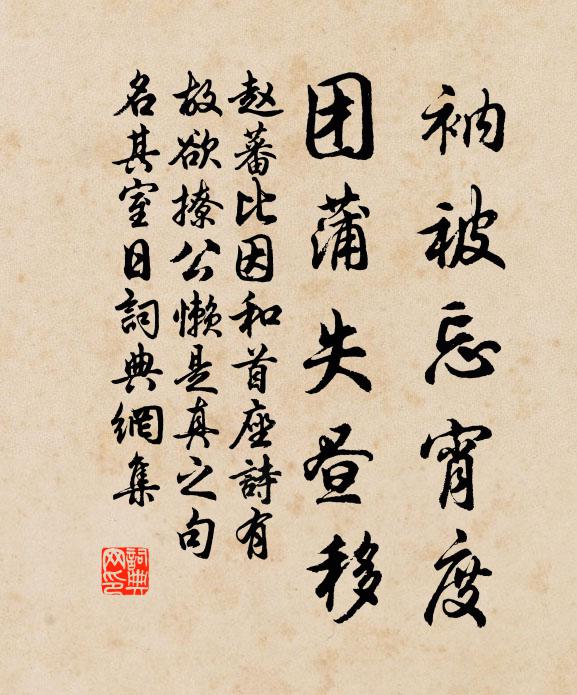 衲被忘宵度
团蒲失昼移
赵蕃比因和首座詩有
故欲撩公懒是真之句
名其室日詞典網集
詞典网印